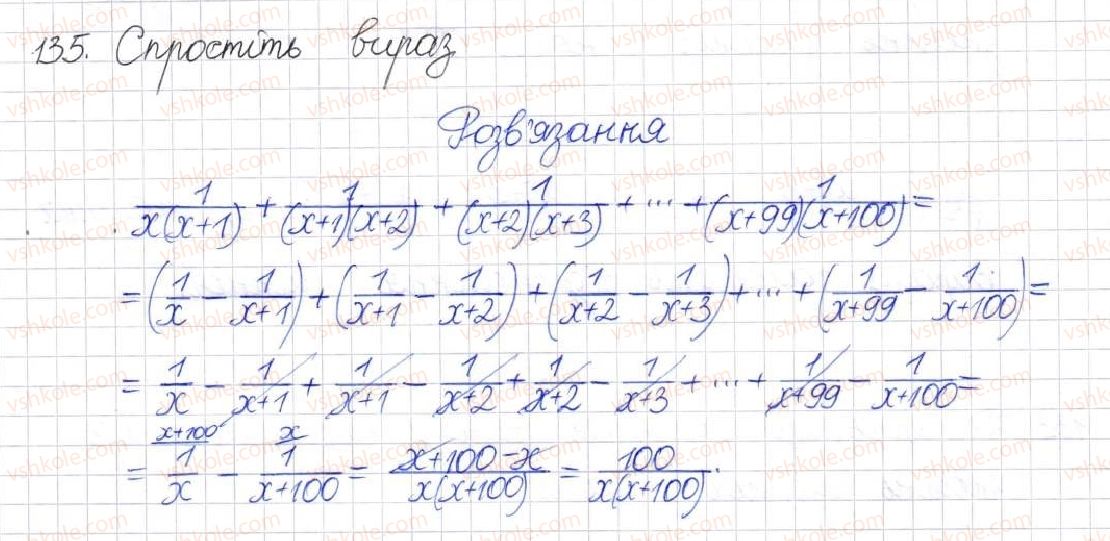 135. Спростіть вираз
Розв'язання
1/(x(x+1)) + 1/((x+1)(x+2)) + 1/((x+2)(x+3)) + ... + 1/((x+99)(x+100)) =
= (1/x − 1/(x+1)) + (1/(x+1) − 1/(x+2)) + (1/(x+2) − 1/(x+3)) + ... + (1/(x+99) − 1/(x+100)) =
= 1/x − 1/(x+1) + 1/(x+1) − 1/(x+2) + 1/(x+2) − 1/(x+3) + ... + 1/(x+99) − 1/(x+100) =
x+100 x
= 1/x − 1/(x+100) = (x+100−x)/(x(x+100)) = 100/(x(x+100)).
vshkole.com